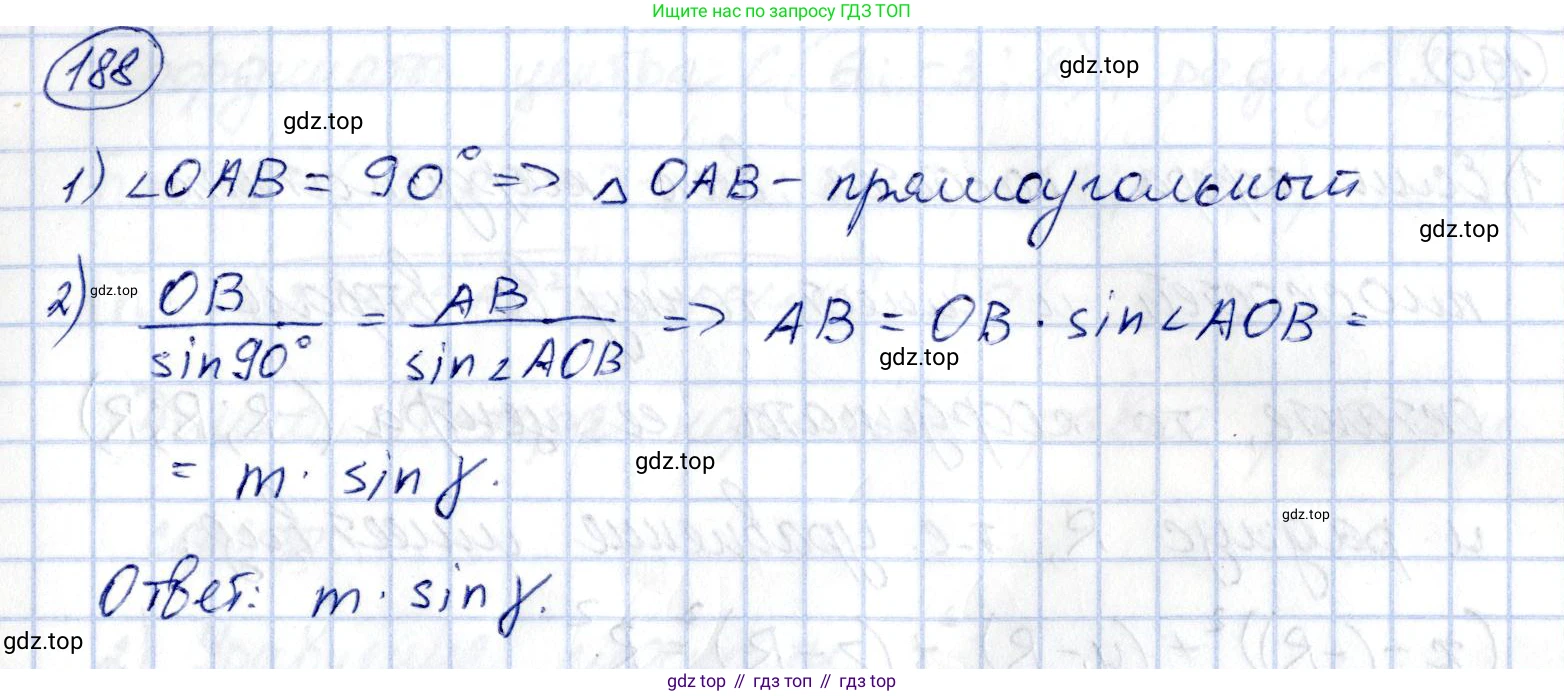 Ищите нас по запросу ГДЗ ТОП
188
gdz.top
gdz.top
1) ∠OAB = 90° => △ OAB - прямоугольный
gdz.top
2) OB/sin90° = AB/sin∠AOB => AB = OB · sin∠AOB =
gdz.top
gdz.top
= m · sin γ.
gdz.top
gdz.top
Ответ: m · sin γ.
gdz.top
gdz top // гдз топ // гдз top